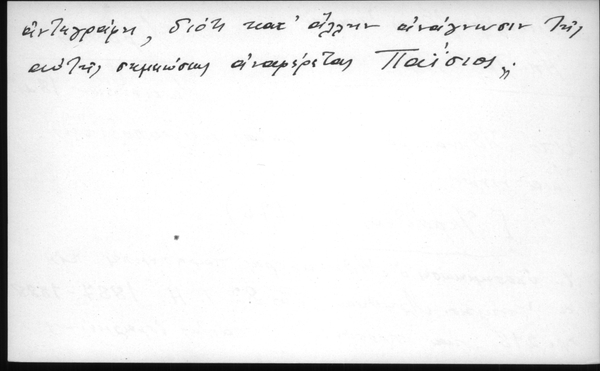 ἀντεγράφη, διότι κατ' ἄλλην ἀνάγνωσιν τῆς
αὐτῆς σημειώσεως ἀναφέρεται Παΐσιος".